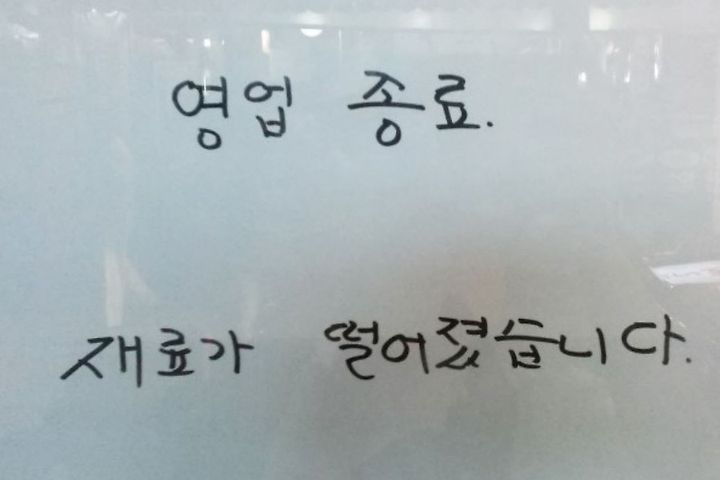 영업 종료.
재료가 떨어졌습니다.